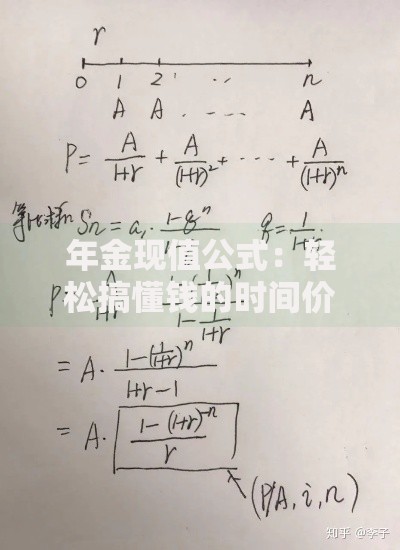 r
0 1 2 · ·· n
A A ····· A
P = A/(1+r) + A/(1+r)² + ···· + A/(1+r)ⁿ
等比求和 Sn = a₁ · (1-qⁿ)/(1- q = 1/(1+
年金现值公式：轻
松搞懂钱的时间价
P A 1-(1/(1+r))ⁿ / (1-1/(1+r))
= A · (1-(1/(1+r))ⁿ)/(1+r-1)
= A · (1-(1+r)⁻ⁿ)/r
(P/A, i, n)
知乎 @李子